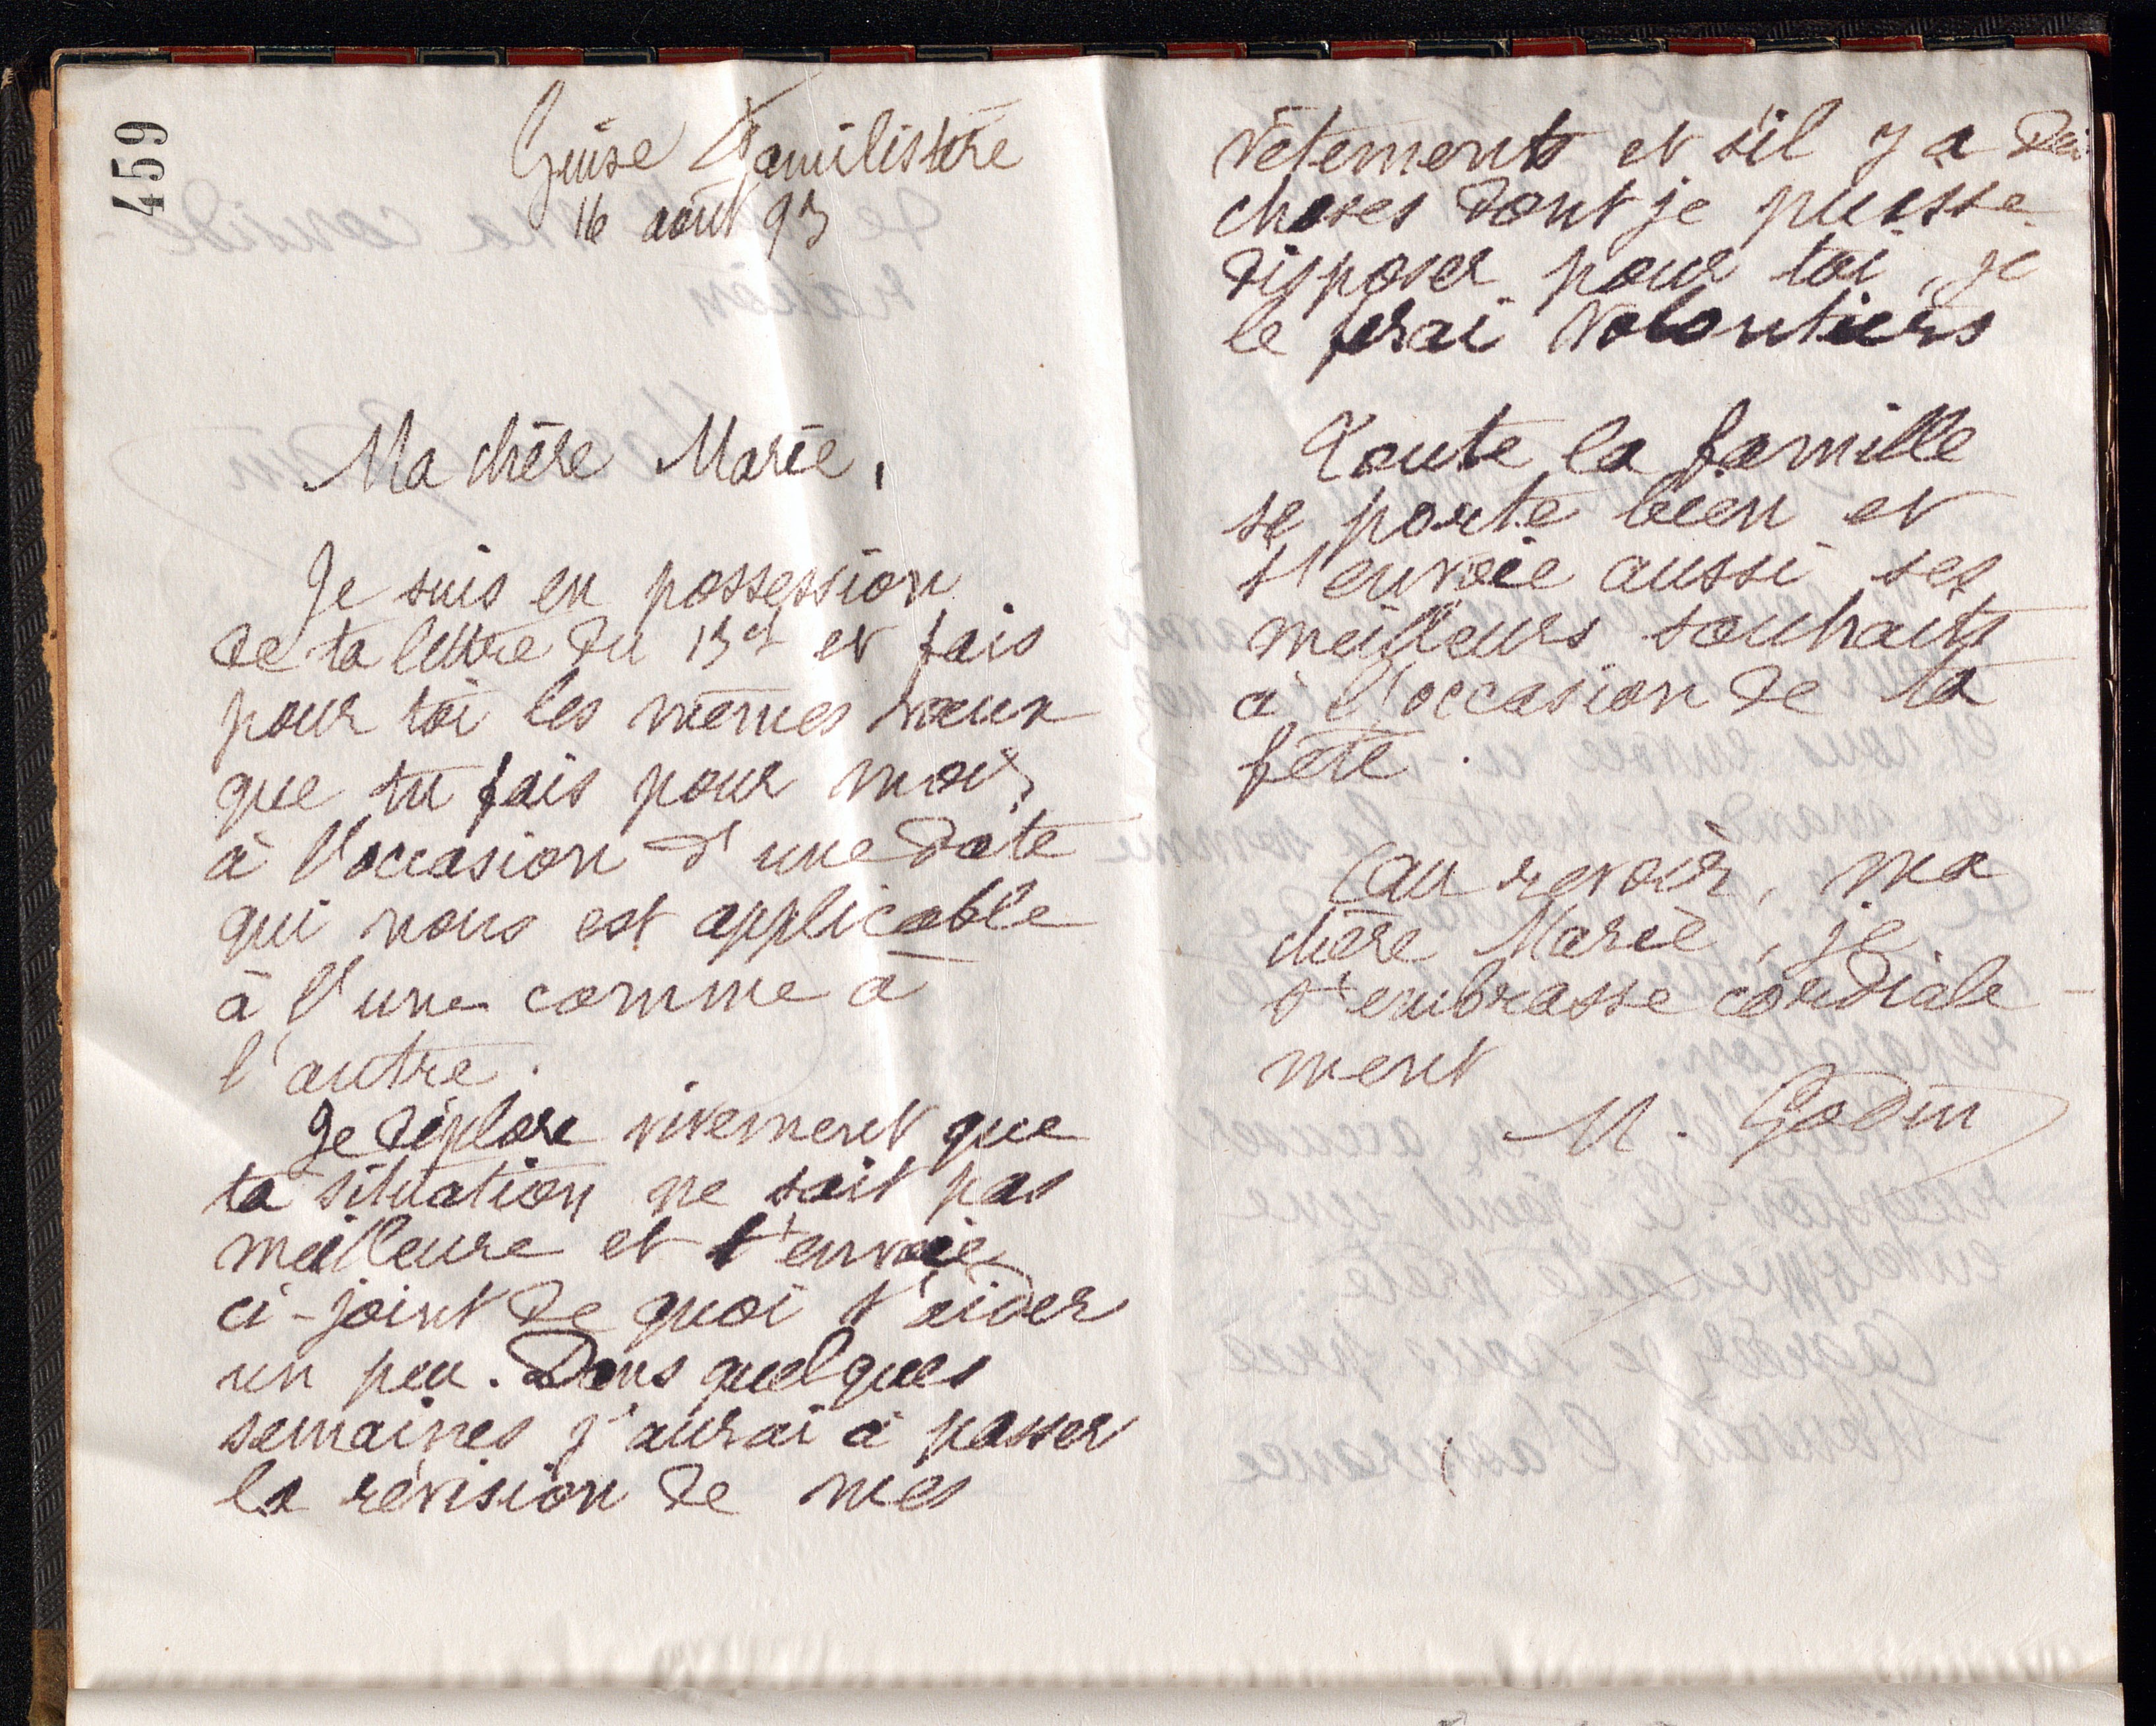 459
Guise Familistère
16 août 93
Ma chère Marie,
Je suis en possession
de ta lettre du 13 ct et fais
pour toi les mêmes vœux
que tu fais pour moi,
à l'occasion d'une date
qui nous est applicable
à l'une comme à
l'autre.
Je déplore vivement que
ta situation ne soit pas
meilleure et t'envoie
ci-joint de quoi t'aider
un peu. Dans quelques
semaines j'aurai à passer
la révision de mes
vêtements et s'il y a des
choses dont je puisse
disposer pour toi, je
le ferai volontiers
Toute la famille
se porte bien et
t'envoie aussi ses
meilleurs souhaits
à l'occasion de ta
fête.
Au revoir, ma
chère Marie, je
t'embrasse cordiale-
ment
M. Godin